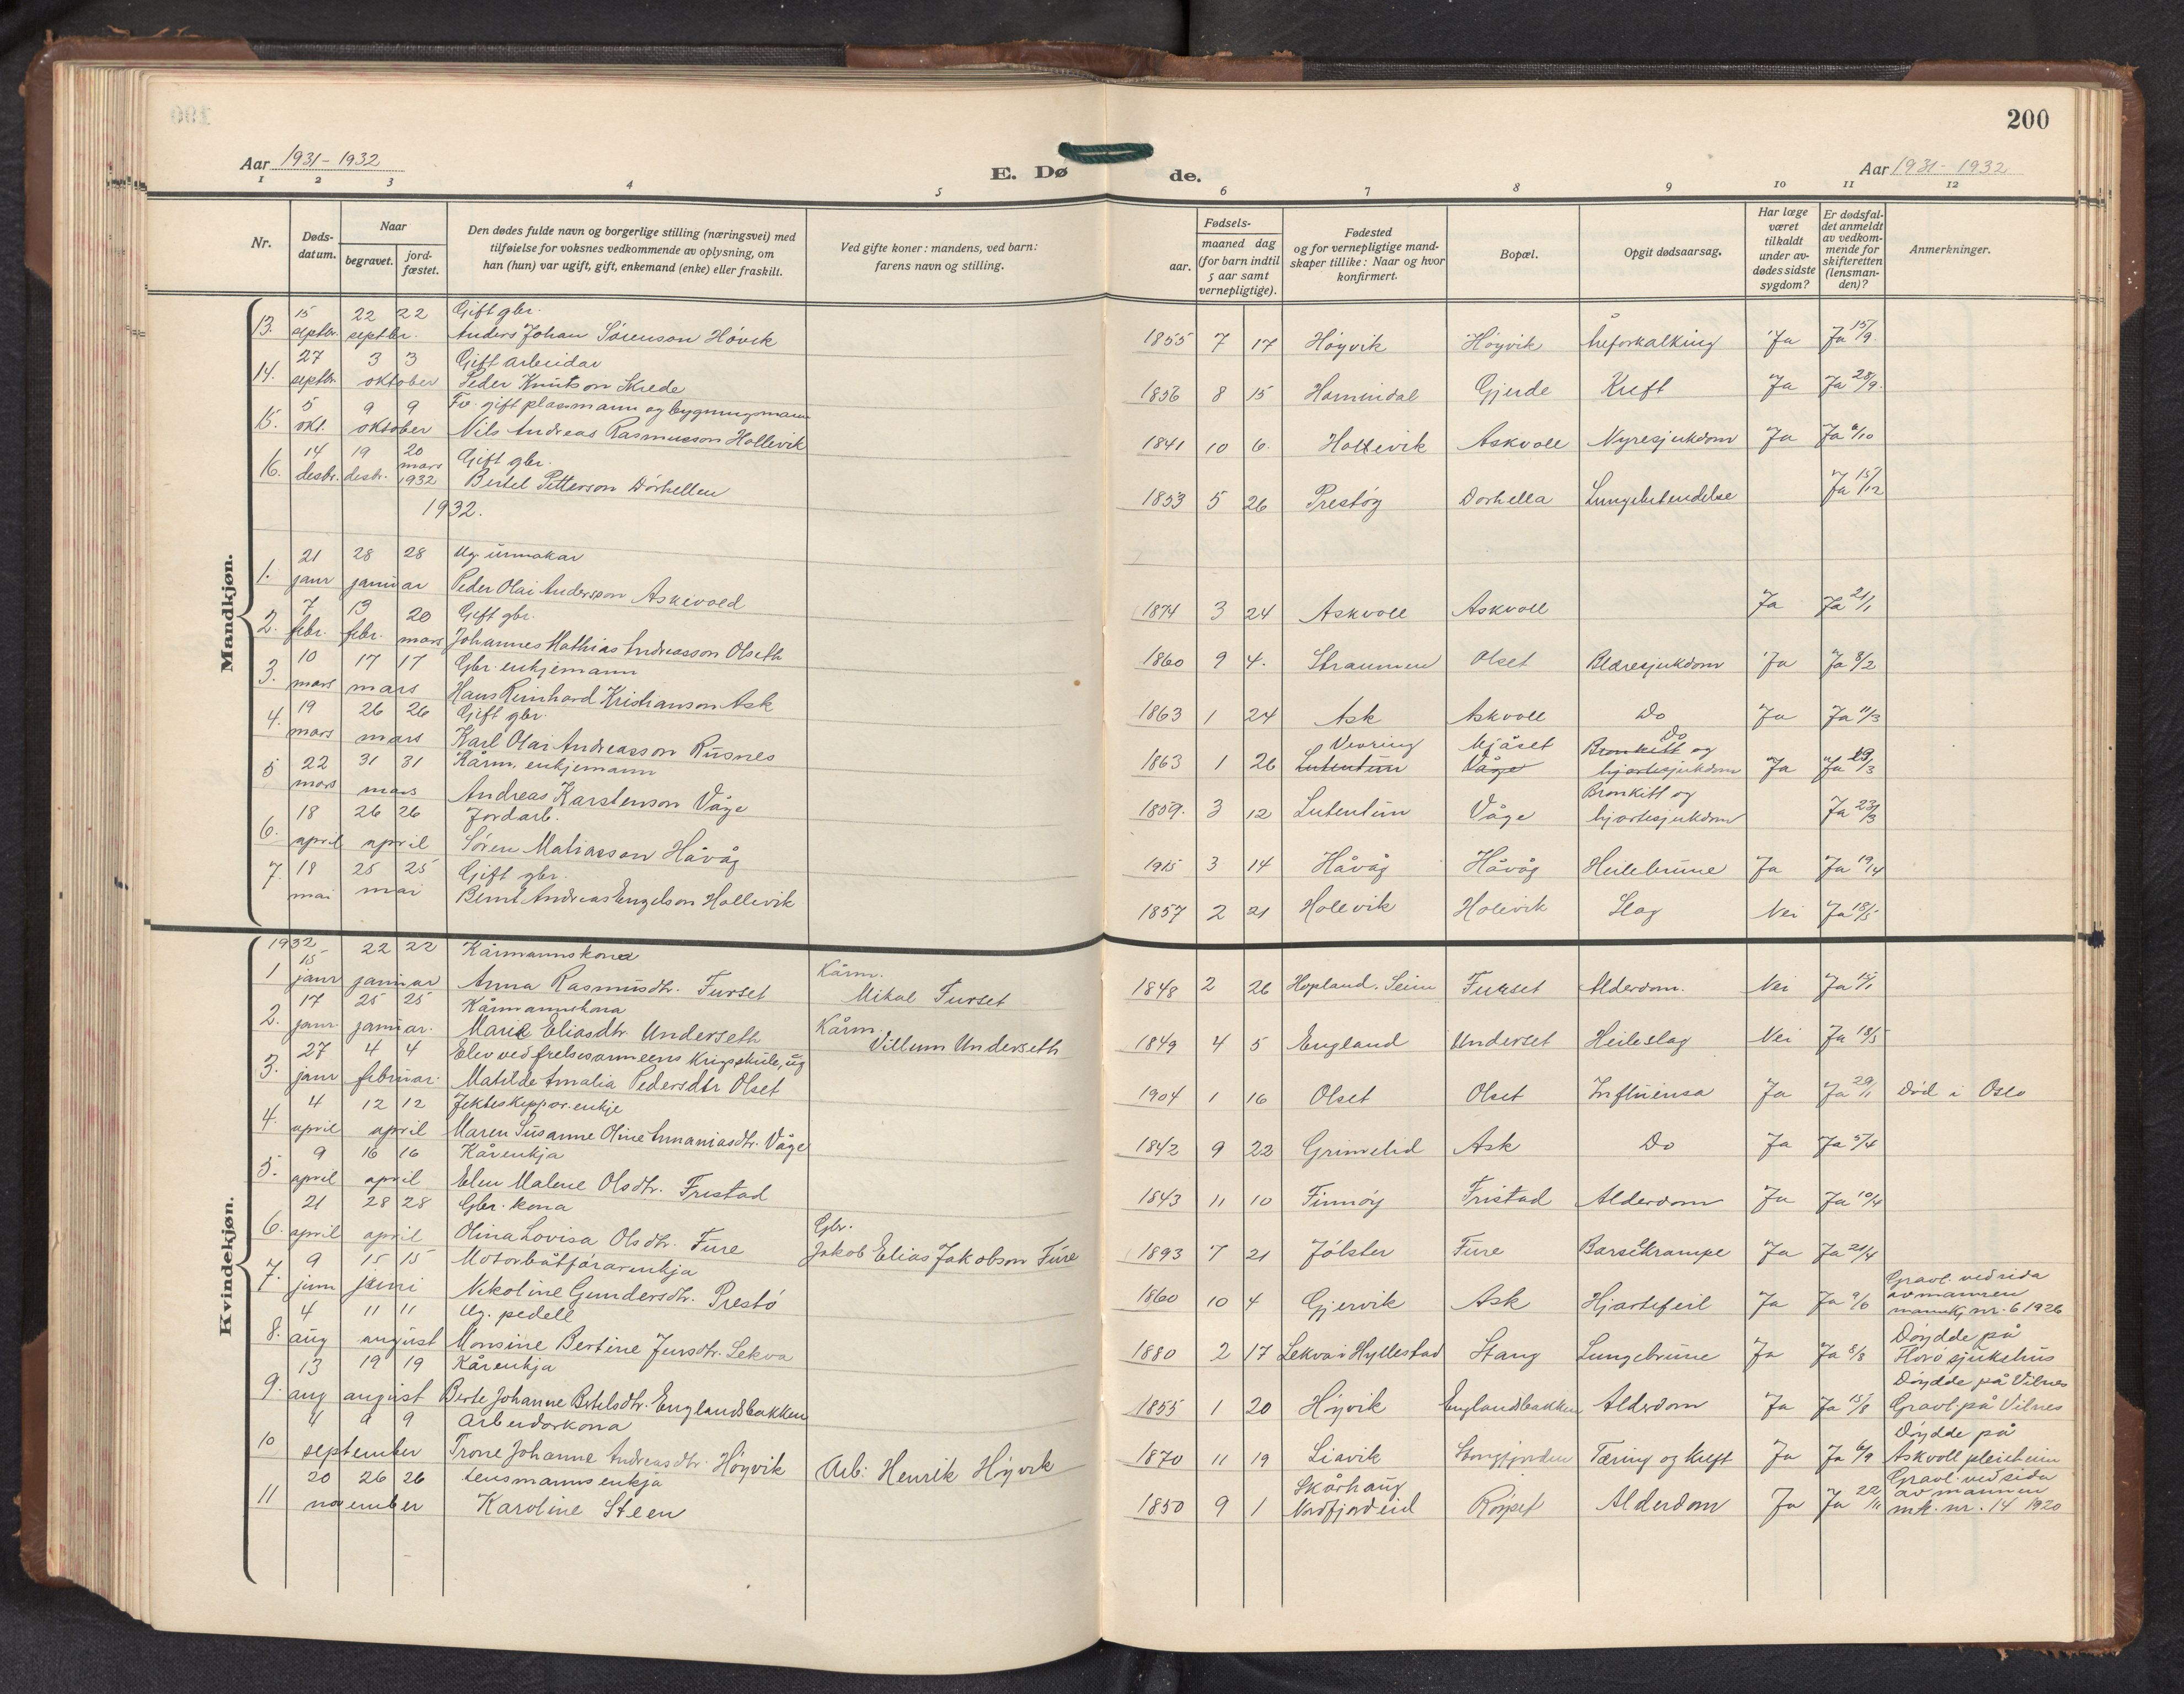 200
Aar 1931-1932
E. Døde.
Aar 1931-1932
1 2 3 4 5 6 7 8 9 10 11 12
Nr.
Døds-datum.
Naar
begravet.
jord-fæstet.
Den dødes fulde navn og borgerlige stilling (næringsvei) med
tilføielse for voksnes vedkommende av oplysning, om
han (hun) var ugift, gift, enkemand (enke) eller fraskilt.
Ved gifte koner: mandens, ved barn:
farens navn og stilling.
Fødsels-
aar.
maaned dag
(for barn indtil
5 aar samt
vernepligtige).
Fødested
og for vernepligtige mand-
skaper tillike: Naar og hvor
konfirmert.
Bopæl.
Opgit dødsaarsag.
Har læge
været
tilkaldt
under av-
dødes sidste
sygdom?
Er dødsfal-
det anmeldt
av vedkom-
mende for
skifteretten
(lensman-
den)?
Anmerkninger.
Mandkjøn.
13. 15 septbr. 22 22 septbr. Gift gbr.
Anders Johan Sørenson Høvik 1855 7 17 Høyvik Høyvik Åreforkalking Ja Ja 15/9.
14. 27 septbr. 3 3 oktober Gift arbeidar
Peder Knutson Skrede 1856 8 15 Hornindal Gjerde Kreft Ja Ja 28/9.
15. 5 okt. 9 9 oktober Fv. gift plasmann og bygningsmann
Nils Andreas Rasmusson Hollevik 1841 10 6. Hollevik Askvoll Nyresjukdom Ja Ja 6/10
16. 14 desbr. 19 desbr. 20 mars 1932 Gift gbr.
Bertel Petterson Dørhellen 1853 5 26 Prestøy Dørhella Lungebetendelse Ja 15/12
1932.
1. 21 janr 28 28 januar Ug. urmakar
Peder Olai Anderson Askevold 1874 3 24 Askvoll Askvoll Ja Ja 21/1
2. 7 febr. 13 febr. 20 mars Gift gbr.
Johannes Mathias Andreasson Olseth 1860 9 4. Straumen Olset Blæresjukdom Ja Ja 8/2
3. 10 mars 17 17 mars Gbr. enkjemann
Hans Reinhard Kristianson Ask 1863 1 24 Ask Askvoll Do Ja Ja 11/3
4. 19 mars 26 26 mars Gift gbr.
Karl Olai Andreasson Rusnes 1863 1 26 Vevring Lutentun Mjåset Våge Do Bronkitt og hjartesjukdom Ja Ja 19/3
5 22 mars 31 31 mars Kårm. enkjemann
Andreas Karstenson Våge 1859. 3 12 Lutentun Våge Bronkitt og hjartesjukdom Ja 23/3
6. 18 april 26 26 april Jordarb.
Søren Matiasson Håvåg 1915 3 14 Håvåg Håvåg Heilebrune Ja Ja 19/4
7. 18 mai 25 25 mai Gift gbr.
Bernt Andreas Engelson Hollevik 1857 2 21 Holevik Holevik Slag Nei Ja 18/5
Kvindekjøn.
1932
1 15 janr 22 22 januar Kårmannskona
Anna Rasmusdtr. Furset Kårm. Mikal Furset 1848 2 26 Hopland, Seim Furset Alderdom. Nei Ja 15/1
2. 17 janr. 25 25 januar. Kårmannskona
Marie Eliasdtr. Underseth Kårm. Villum Underseth 1849 4 5 England Underset Heileslag Nei Ja 18/5
3. 27 janr 4 4 februar. Elev ved frelsesarmeens krigsskule, ug
Matilde Amalia Pedersdtr Olset 1904 1 16 Olset Olset Influensa Ja Ja 29/1 Død i Oslo
4. 4 april 12 12 april Jekteskippar. enkje
Maren Susanne Oline Ananiasdtr. Våge 1842 9 22 Grimelid Ask Do Ja Ja 5/4
5. 9 april 16 16 april Kårenkja
Elen Malene Olsdtr. Fristad 1843 11 10 Finnøy Fristad Alderdom Ja Ja 10/4
6. 21 april 28 28 april Gbr. kona
Olina Lovisa Olsdtr. Fure Gbr. Jakob Elias Jakobson Fure 1893 7 21 Jølster Fure Barselkrampe Ja Ja 21/4
7. 9 juni 15 15 juni Motorbåtførarenkja
Nikoline Gundersdtr. Prestø 1860 10 4 Gjervik Ask Hjartefeil Ja Ja 9/6 Gravl. ved sida av mannen mannkj nr. 6 1926
8. 4 aug 11 11 august Ug. pedell
Monsine Bertine Jensdtr. Lekva 1880 2 17 Lekva i Hyllestad Stang Lungebrune Ja Ja 8/8 Døydde på Florø sjukehus
9. 13 aug 19 19 august Kårenkja
Berte Johanne Bertelsdtr. Englandsbakken 1855 1 20 Høyvik Englandsbakken Alderdom Ja Ja 15/8 Døydde på Vilnes Gravl. på Vilnes
10 4 9 9 september Arbeidarkona
Trone Johanne Andreasdtr. Høyvik Arb: Henrik Høyvik 1870 11 19 Liavik Stongfjorden Tæring og kreft Ja Ja 6/9 Døydde på Askvoll pleieheim
11 20 26 26 november Lensmannsenkja
Karoline Steen 1850 9 1 Skårhaug Nordfjordeid Røyset Alderdom Ja Ja 22/11 Gravl. ved sida av mannen mk. nr. 14 1920